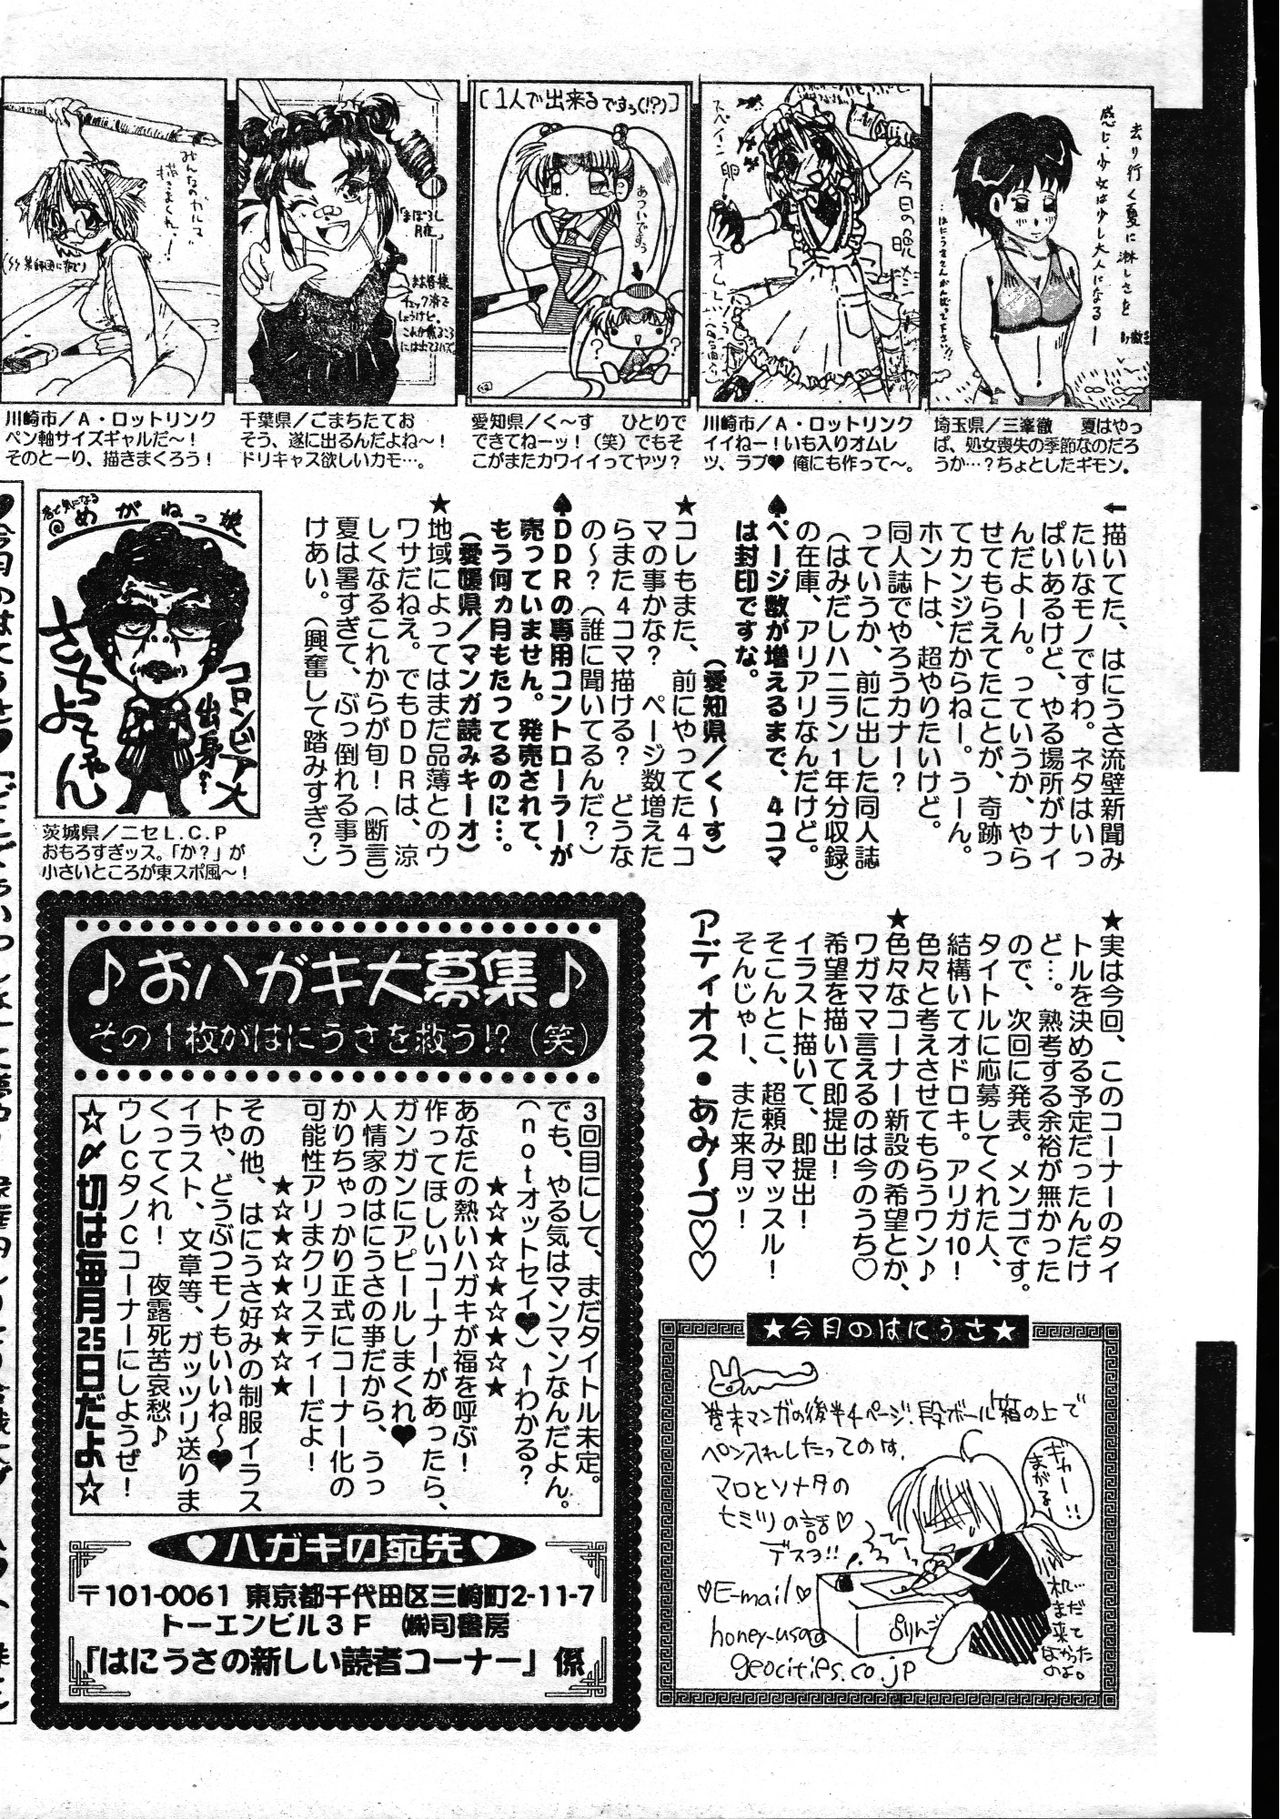 去り行く夏に淋しさを
感じ、少女は少し大人になる―
埼玉県/三峯徹　夏はやっ
ぱ、処女喪失の季節なのだろ
うか…?ちょとしたギモン。
今日の晩
スペイン
オムレツ
川崎市/A・ロットリンク
イイねー!いも入りオムレ
ツ、ラブ♥ 俺にも作って〜。
[1人で出来るですぅ(!?)]
あついですぅ
愛知県/く〜す　ひとりで
できてねーッ!(笑)でもそ
こがまたカワイイってヤツ?
まぼろし
月夜
お客様
チェック済で
しょうけど。
千葉県/ごまちたてお
そう、遂に出るんだよね〜!
ドリキャス欲しいカモ…。
みんなのガルで
描きまくれ!
川崎市/A・ロットリンク
ペン軸サイズギャルだ〜!
そのとーり、描きまくろう!
←描いてた、はにうさ流壁新聞み
たいなモノですわ。ネタはいっ
ぱいあるけど、やる場所がナイ
んだよーん。っていうか、やら
せてもらえてたことが、奇跡っ
てカンジだからねー。うーん。
ホントは、超やりたいけど。
同人誌でやろうカナー?
っていうか、前に出した同人誌
(はみだしハニラン1年分収録)
の在庫、アリアリなんだけど。
♠ページ数が増えるまで、4コマ
は封印ですな。
(愛知県/く〜す)
★コレもまた、前にやってた4コ
マの事かな? ページ数増えた
らまた4コマ描ける? どうな
の〜?(誰に聞いてるんだ?)
♠DDRの専用コントローラーが
売っていません。発売されて、
もう何ヵ月もたってるのに…。
(愛媛県/マンガ読みキーオ)
★地域によってはまだ品薄とのウ
ワサだねえ。でもDDRは、涼
しくなるこれからが旬!(断言)
夏は暑すぎて、ぶっ倒れる事う
けあい。(興奮して踏みすぎ?)
君も気になる
@めがねっ娘
コロンビア大
出身か?
さちよちゃん
茨城県/ニセL.C.P
おもろすぎッス。「か?」が
小さいところが東スポ風〜!
★実は今回、このコーナーのタイ
トルを決める予定だったんだけ
ど…。熟考する余裕が無かった
ので、次回に発表。メンゴです。
タイトルに応募してくれた人、
結構いてオドロキ。アリガ10!
色々と考えさせてもらうワン♪
★色々なコーナー新設の希望とか、
ワガママ言えるのは今のうち♡
希望を描いて即提出!
イラスト描いて、即提出!
そこんとこ、超頼みマッスル!
そんじゃー、また来月ッ!
アディオス・あみ〜ゴ♡♡
★今月のはにうさ★
巻末マンガの後半4ページ、段ボール箱の上で
ペン入れしたってのは、
マロとソナタの
ヒミツの話♡
デスヨ!!
♡E-mail♡
honey-usa@
geocities.co.jp
ギャー!!
まがるぅ
ぷりんご
机…
まだ
来て
なかった
のよ。
♪おハガキ大募集♪
その1枚がはにうさを救う!?(笑)
3回目にして、まだタイトル未定。
でも、やる気はマンマンなんだよん。
(notオットセイ♥)←わかる?
★☆★☆★☆★☆★
あなたの熱いハガキが福を呼ぶ!
作ってほしいコーナーがあったら、
ガンガンにアピールしまくれ♥
人情家のはにうさの事だから、うっ
かりちゃっかり正式にコーナー化の
可能性アリまクリスティーだよ!
★☆★☆★☆★☆★
その他、はにうさ好みの制服イラス
トや、どうぶつモノもいいね〜♥
イラスト、文章等、ガッツリ送りま
くってくれ! 夜露死苦哀愁♪
ウレCタノCコーナーにしようぜ!
☆〆切は毎月25日だよ☆
♥ハガキの宛先♥
〒101-0061 東京都千代田区三崎町2-11-7
トーエンビル3F ㈱司書房
「はにうさの新しい読者コーナー」係